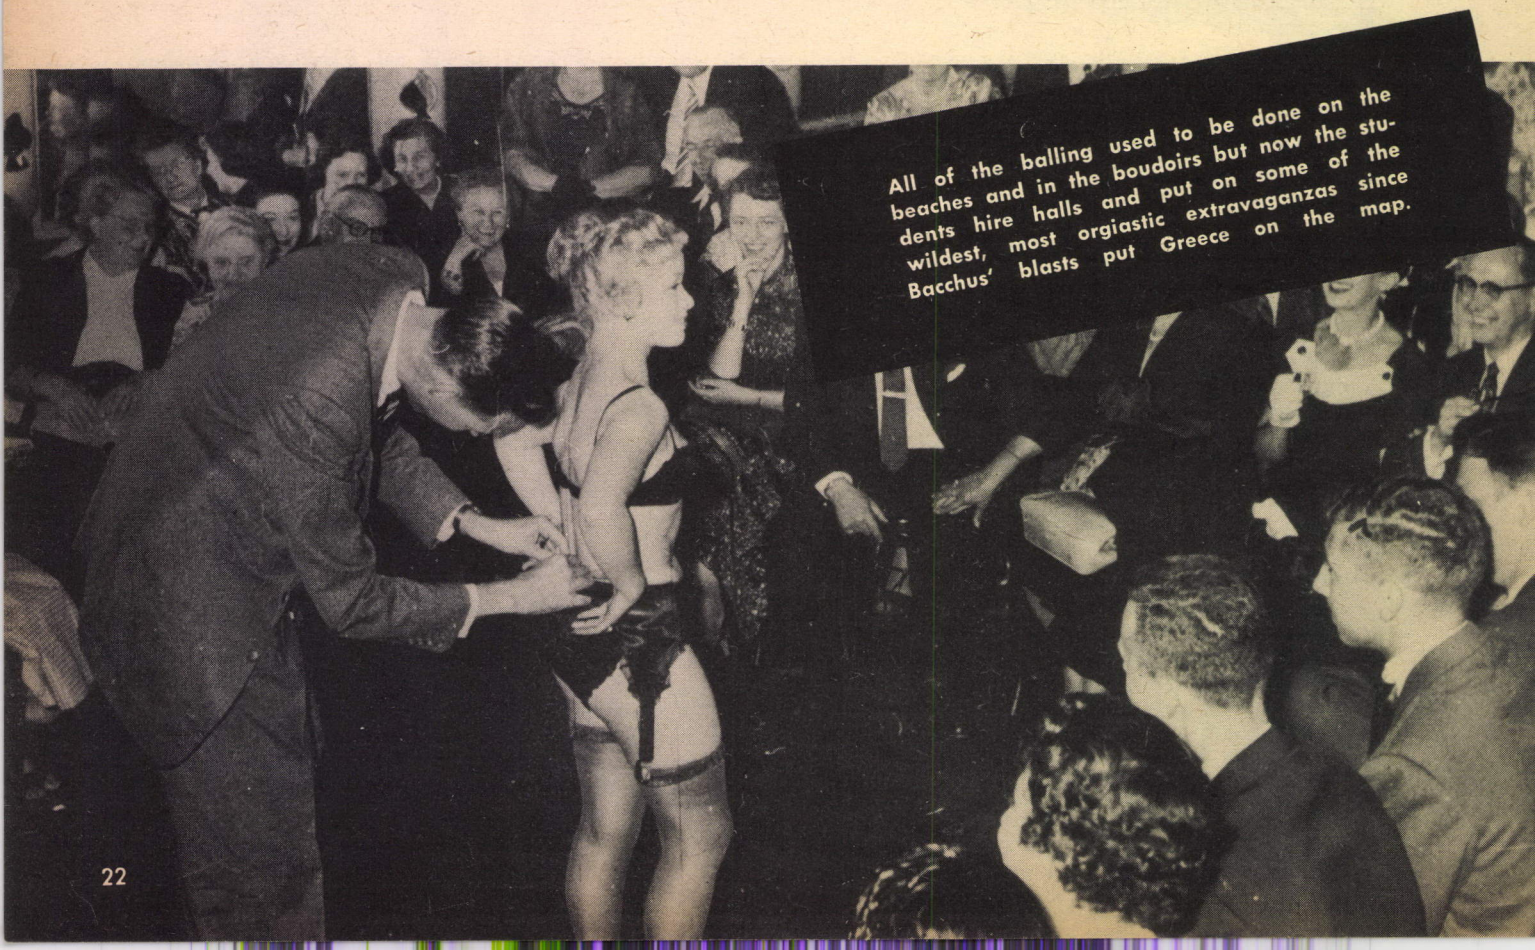 All of the balling used to be done on the
beaches and in the boudoirs but now the stu-
dents hire halls and put on some of the
wildest, most orgiastic extravaganzas since
Bacchus' blasts put Greece on the map.
22